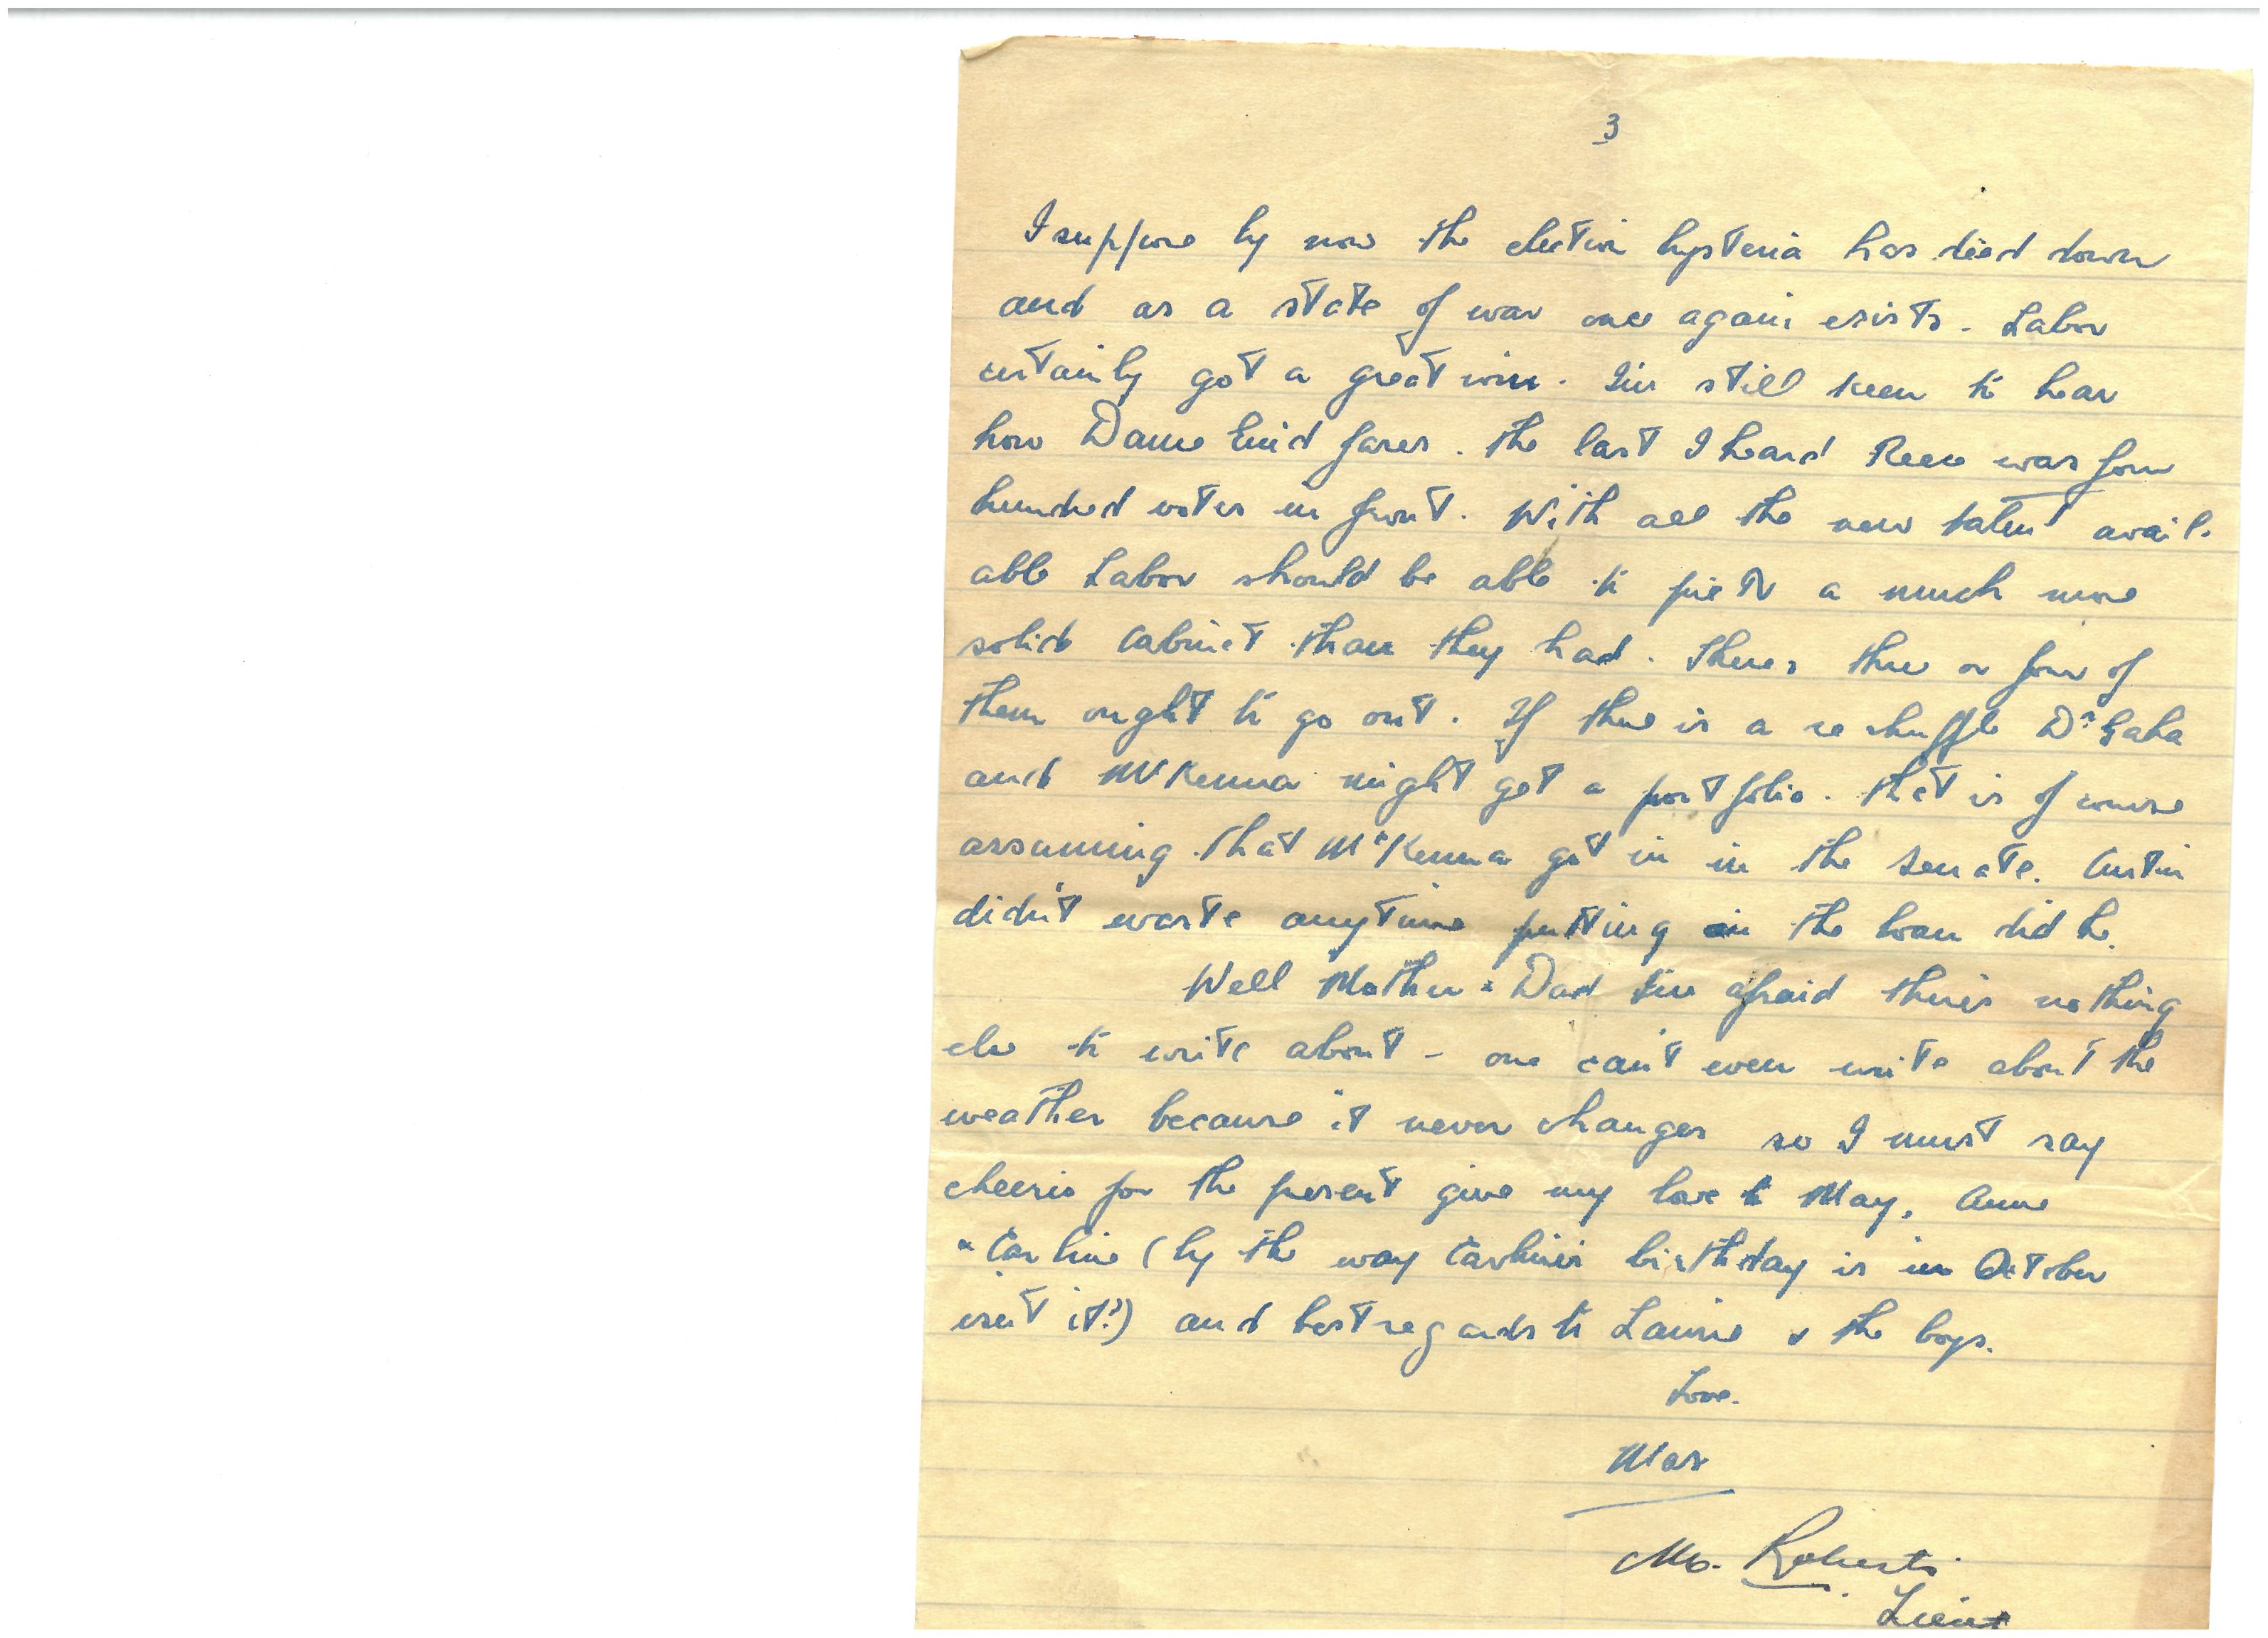 3
I suppose by now the election hysteria has died down
and as a state of war once again exists. Labor
certainly got a great win. I'm still keen to hear
how Dame Enid fares. The last I heard Reece was four
hundred votes in front. With all the new talent avail-
able Labor should be able to pick a much more
solid Cabinet than they had. There's three or four of
them ought to go out. If there is a reshuffle Dr Gaha
and McKenna might get a portfolio. That is of course
assuming that McKenna got in in the Senate. Curtin
didn't waste anytime putting in the loan did he.
Well Mother & Dad I'm afraid there's nothing
else to write about - one can't even write about the
weather because it never changes so I must say
cheerio for the present give my love to May, Anne
& Earline (by the way Earline's birthday is in October
isn't it?) and best regards to Laurie & the boys.
Love.
Max
Roberts
Lieut